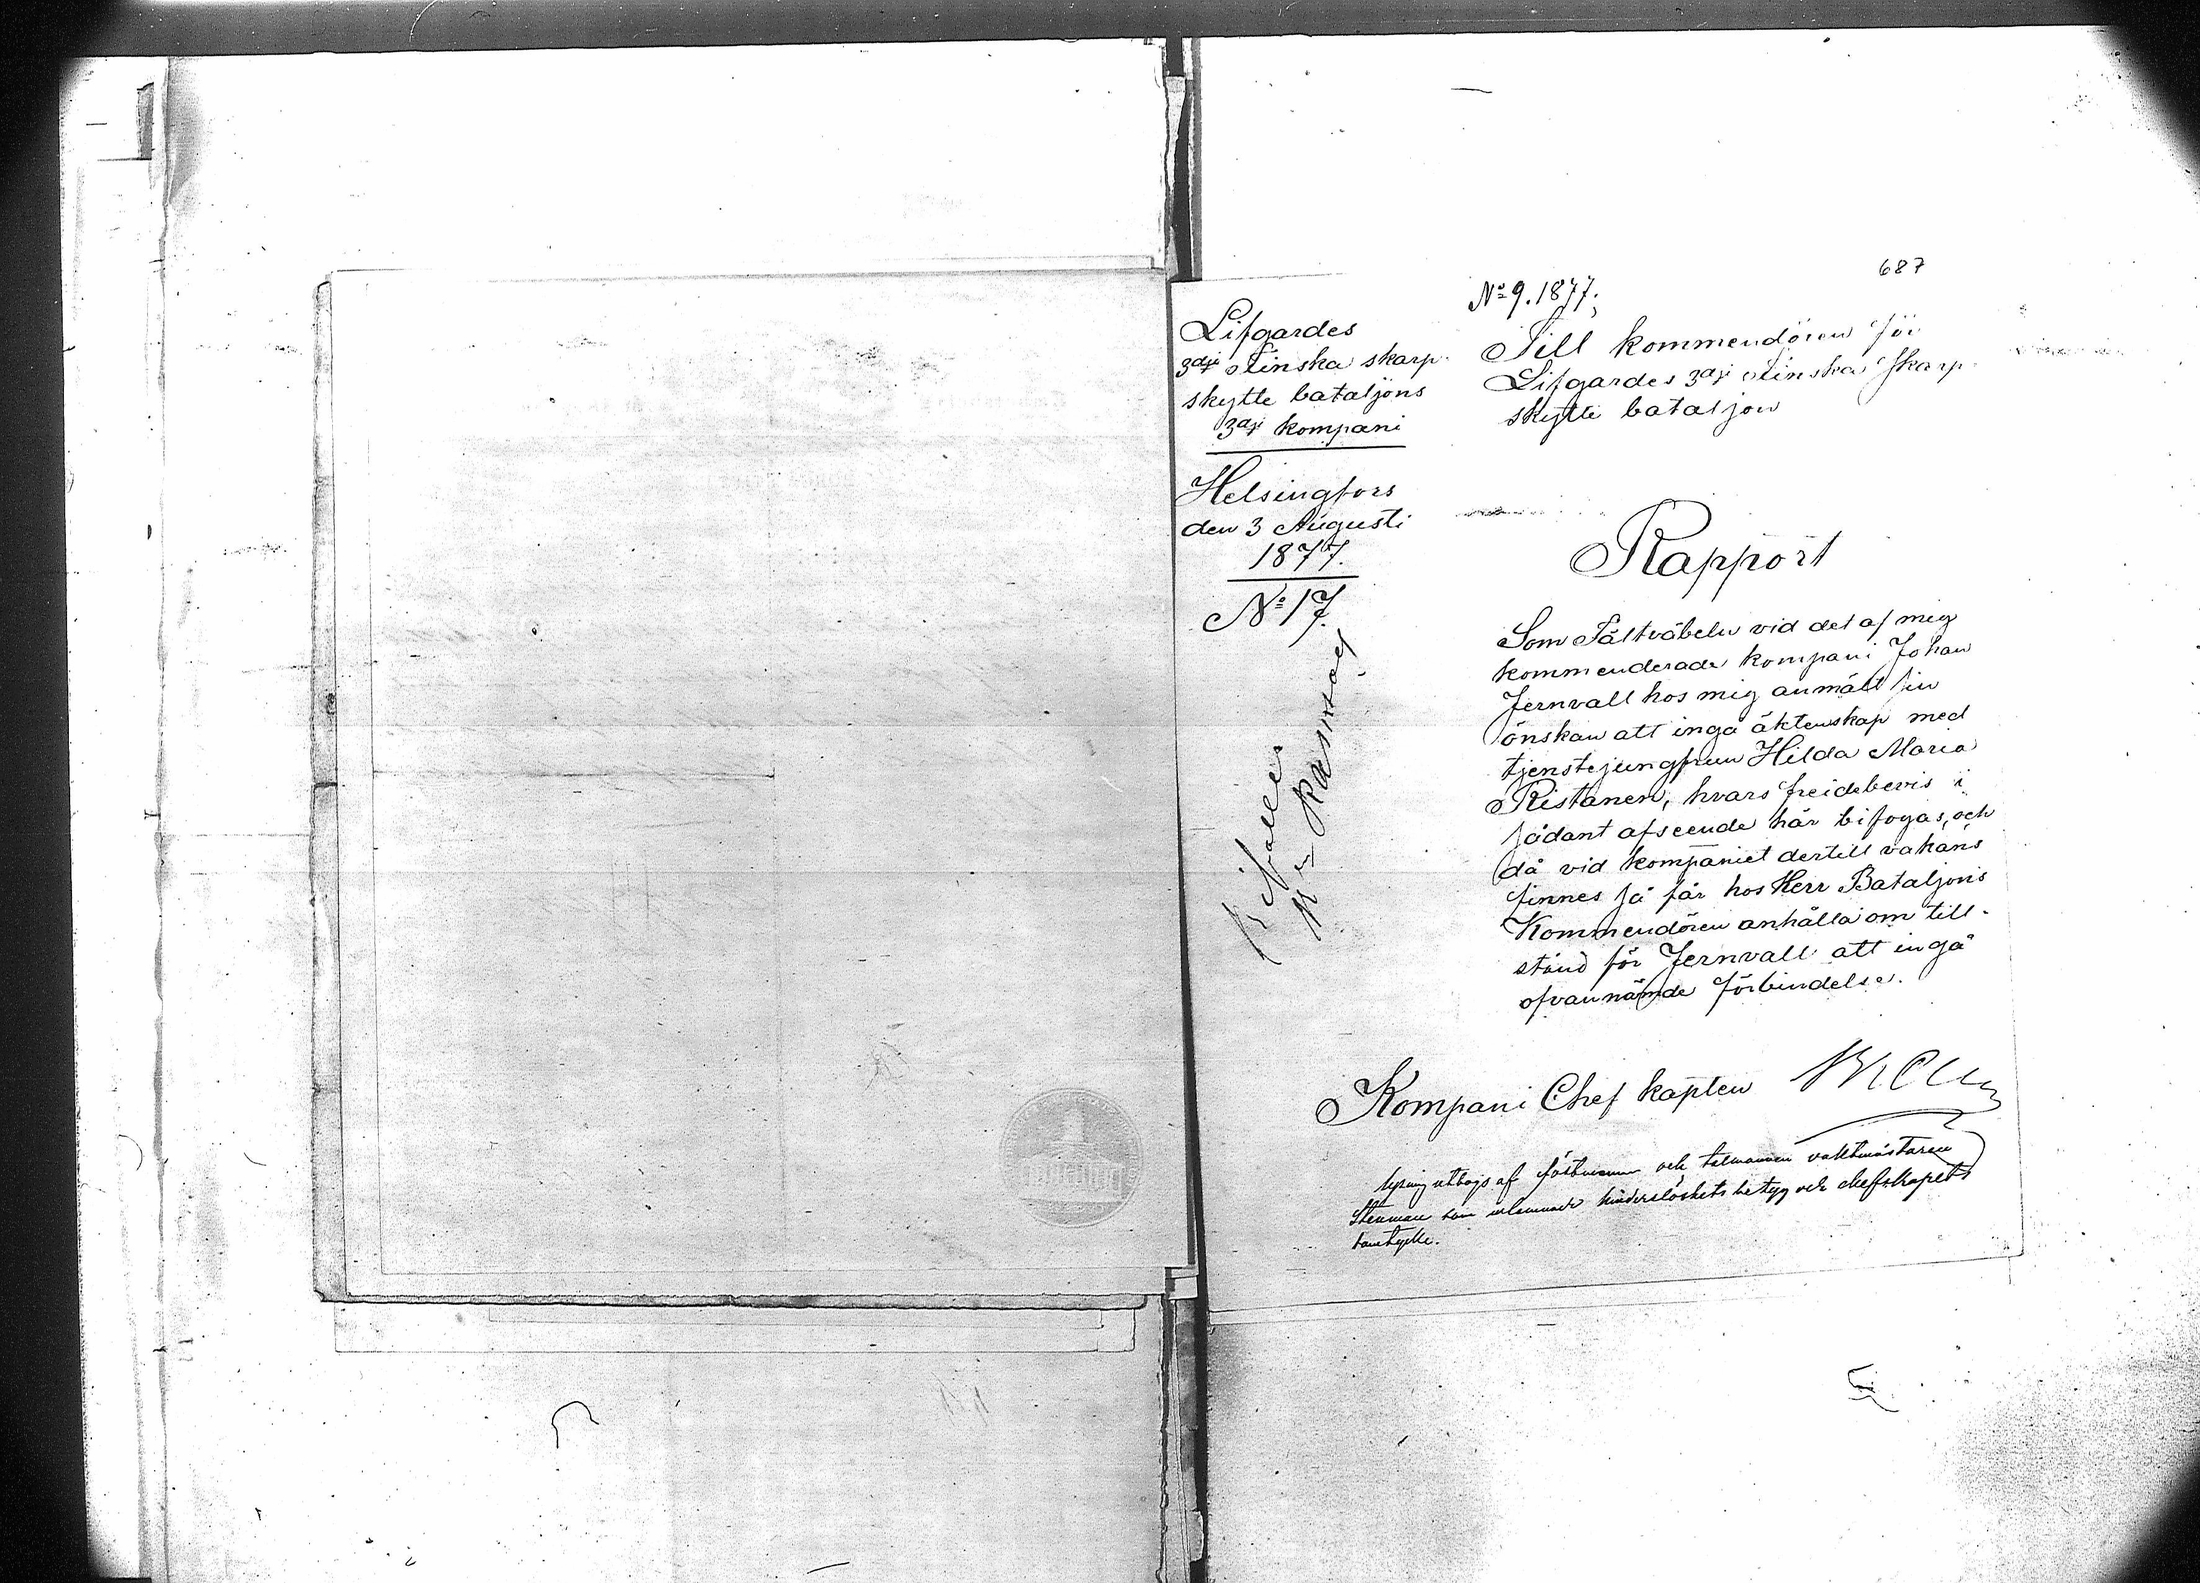 687
Lifgardes
3dje Finska skarp-
skytte bataljons
3dje kompani
Helsingfors
den 3 Augusti
1877.
No 17.
No 9. 1877.
Till kommendören för
Lifgardes 3dje Finska skarp-
skytte bataljon
Rapport
Som Fältväbeln vid det af mig
kommenderade kompani Johan
Jernvall hos mig anmält sin
önskan att ingå äktenskap med
tjenstejungfrun Hilda Maria
Ristanen, hvars freidebevis i
sådant afseende här bifogas, och
då vid kompaniet dertill vakans
finnes så får hos Herr Bataljons
Kommendören anhålla om till-
stånd för Jernvall att ingå
ofvannämde förbindelse.
Kompani Chef kapten
lysning uttogs af fästmannen och talmannen vaktmästaren
Stenman som inlemnade hinderslöshets betyg och chefskapets
samtycke.